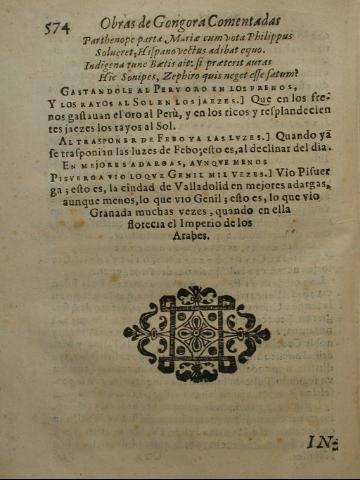 574 Obras de Gongora Comentadas
Parthenope parta Mariæ cum vota Philippus
Solueret, Hispano vectus adibat equo.
Indigena tunc Bætis ait: si præterit auras
Hic Sonipes, Zephiro quis neget esse satum?
GASTANDOLE AL PERV ORO EN LOS FRENOS,
Y LOS RAYOS AL SOL EN LOS JAEZES.] Que en los fre-
nos gastauan el oro al Perù, y en los ricos y resplandecien
tes jaezes los rayos al Sol.
AL TRASPONER DE FEBO YA LAS LVZES.] Quando yà
se trasponian las luzes de Febo; esto es, al declinar del dia.
EN MEJORES ADARGAS, AVNQVE MENOS
PISVERGA VIO LO QVE GENIL MIL VEZES.] Vio Pisuer
ga; esto es, la ciudad de Valladolid en mejores adargas,
aunque menos, lo que vio Genil; esto es, lo que vio
Granada muchas vezes, quando en ella
florecia el Imperio de los
Arabes.
IN-